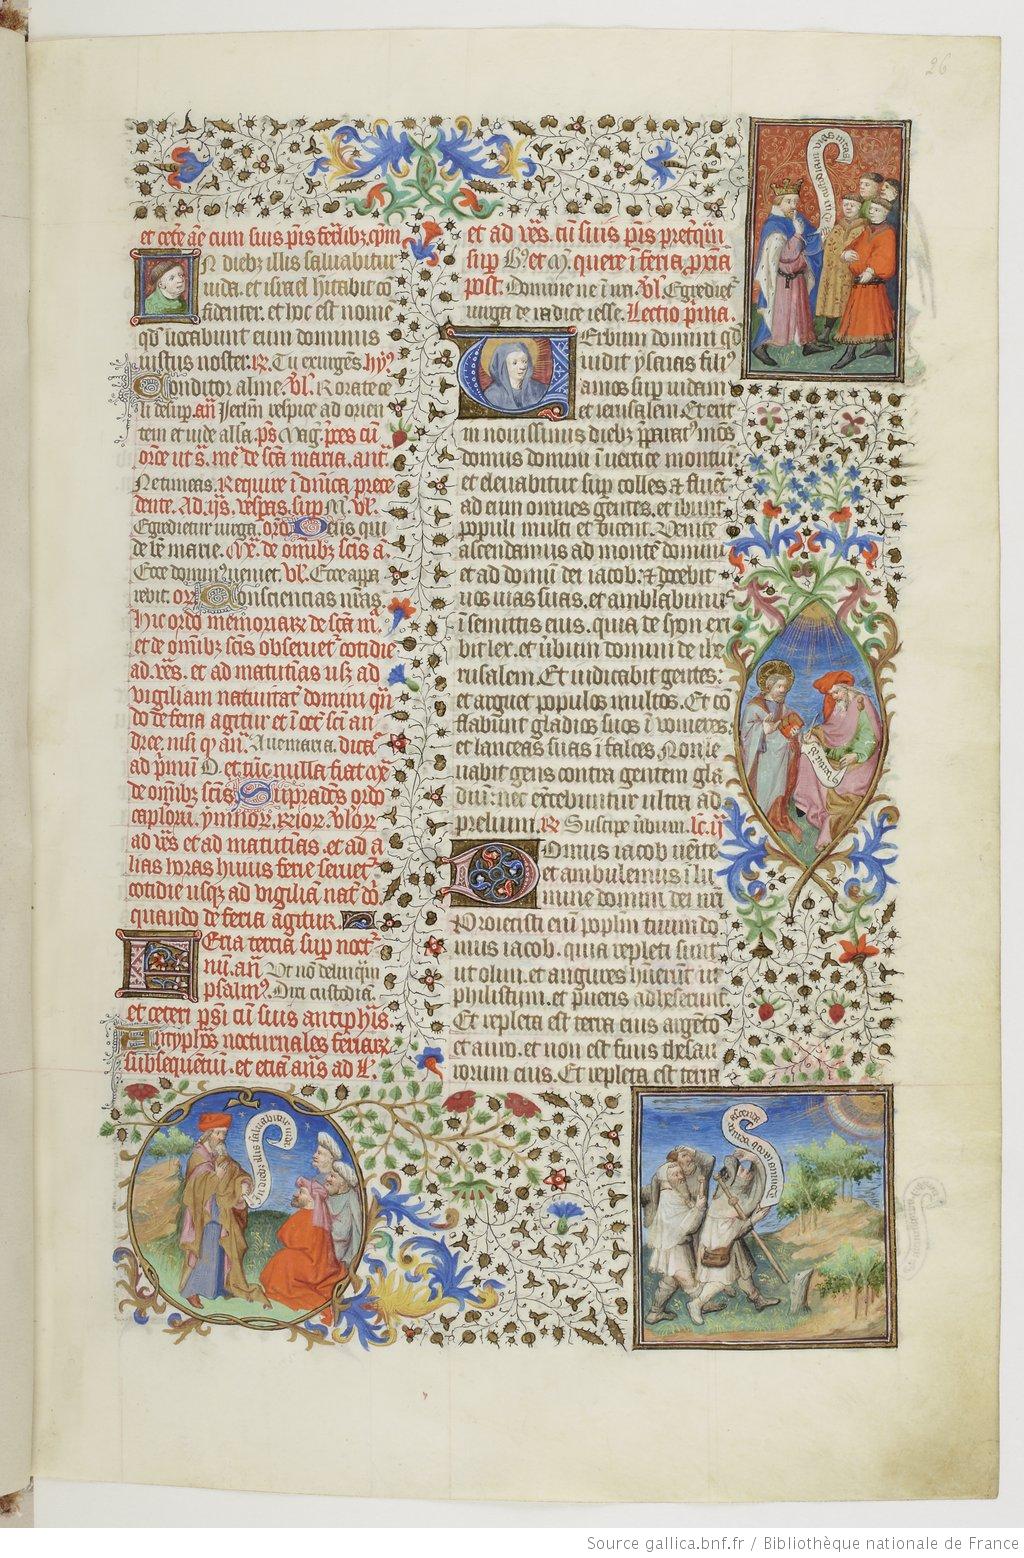 26
custodiam vias meas
et cete ae cum suis p̄is ferībz. cōpm
In diebz illis saluabitur
iuda. et israel hitabit cō
fidenter. et hoc est nomē
qd̄ uocabunt eum dominus
iustus noster. R. Tu exurgēs. hy9
Conditor alme. Vl. Rorate ce
li desup. an̄ Jerl̄m respice ad orien
tem et uide alla. p̄s Mag. p̄ces cū
or̄one ut s̄. me. de sc̄a maria. ant.
Ne timeas. Require ī dn̄ica prece
dente. Ad. ijs. vesp̄as. sup M. Vl.
Egredietur uirga. oro Deus qui
de bē marie. de omībz sc̄is a.
Ecce domin9 ueniet. Vl. Ecce appa
rebit. or Conscientias nr̄as
hic ordo memoriarz de sc̄a m̄
et de omībz sc̄is obseruet cotidie
ad v̄es. et ad matutīas usqz ad
vigiliam natiuitat domini qn̄
do de feria agitur et ī oct sc̄i an
dree. nisi qd an̄. Aue maria. dicat
ad p̄mū et tūc nulla fiat
de omībz sc̄is Supradc̄us ordo
caplorū. ymnorz. R̄iorz. Vlorz
ad v̄es et ad matutīas. et ad a
lias horas huius ferie seruet
cotidie usqz ad vigiliā nat dō.
quando de feria agitur.
Feria tercia sup noct
nū. an̄ Ut nō delinquā
psalm9. Dixi custodiā.
et ceteri ps̄i cū suis antiphīs.
Antyphōs nocturnales feriarz
subsequentiū. et etiā an̄s ad L.
et ad v̄es. cū suis p̄is
sup et M. quere ī feria p̄xīa
post. Domine ne ī ira Vl. Egrediet
uirga de radice iesse. Lectio p̄ma.
Verbum domini qd̄
uidit ysaias fili9
amos sup iudam
et ierusalem. Et erit
in nouissimis diebz p̄parat9 mōs
domus domini ī uertice montiū
et eleuabitur sup colles & fluēt
ad eum omnes gentes. et ibunt
populi multi et dicent. Venite
ascendamus ad montē domini
et ad domū dei iacob. & docebit
nos uias suas. et amblabimus
ī semitis eius. quia de syon exi
bit lex. et ūbum domini de ihe
rusalem. Et iudicabit gentes:
et arguet populos multos. Et cō
flabunt gladios suos ī uomeres
et lanceas suas ī falces. Non le
uabit gens contra gentem gla
diū: nec exc̄ebuntur ultra ad
prelium. R Suscipe ūbum. lc. ij
Domus iacob uēnite
et ambulemus ī lu
mine domini dei nr̄i
Proiecisti enī poplm tuum do
mus iacob. quia repleti sunt
ut olim. et augures hūerūt ut
philistiim. et pueris adheserunt.
Et repleta est terra eius argēto
et auro. et non est finis thesau
rorum eius. Et repleta est terra
In diebz illis saluabitur iuda
Source gallica.bnf.fr / Bibliothèque nationale de France